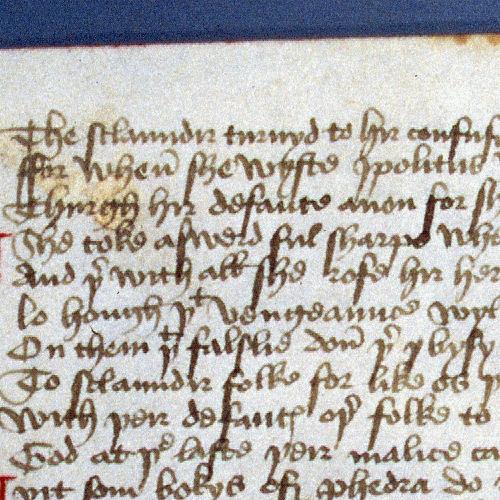 The sclaundir turnyd to hir confus
For when̄ she wyste ypolitus
Thurgh hir defaute anon for sh
She toke a swerd ful sharpe whe
And þͬ with all she rofe hir her
lo hough þͭ vengeaunce wyl
On them þͭ falslie don̄ þͬ y bysy
To sclaundir folke for like as
with þeir defaute oþͬ folke to
God at þͤ laste þeir malice ca
yit som bokys of phedra do